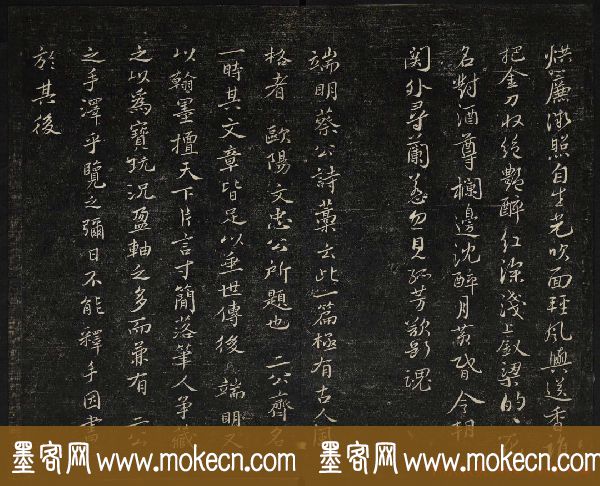 烘簾微照自生光吹面輕風與送香誰
把金刀收絕艷醉紅深淺上釵梁的的
名對酒尊欄邊沈醉月黃昏今朝
関外尋蘭蕙忽見孤芳欲魂
端明蔡公詩藁云此一篇極有古人風
格者 歐陽文忠公所題也 二公齊名
一時其文章皆足以垂世傳後 端明又
以翰墨擅天下片言寸簡落筆人爭藏
之以為寶玩況盈軸之多而兼有 二公
之手澤乎覽之彌日不能釋手因書
於其後
墨客网 www.mokecn.com 墨客网 www.mokecn.com